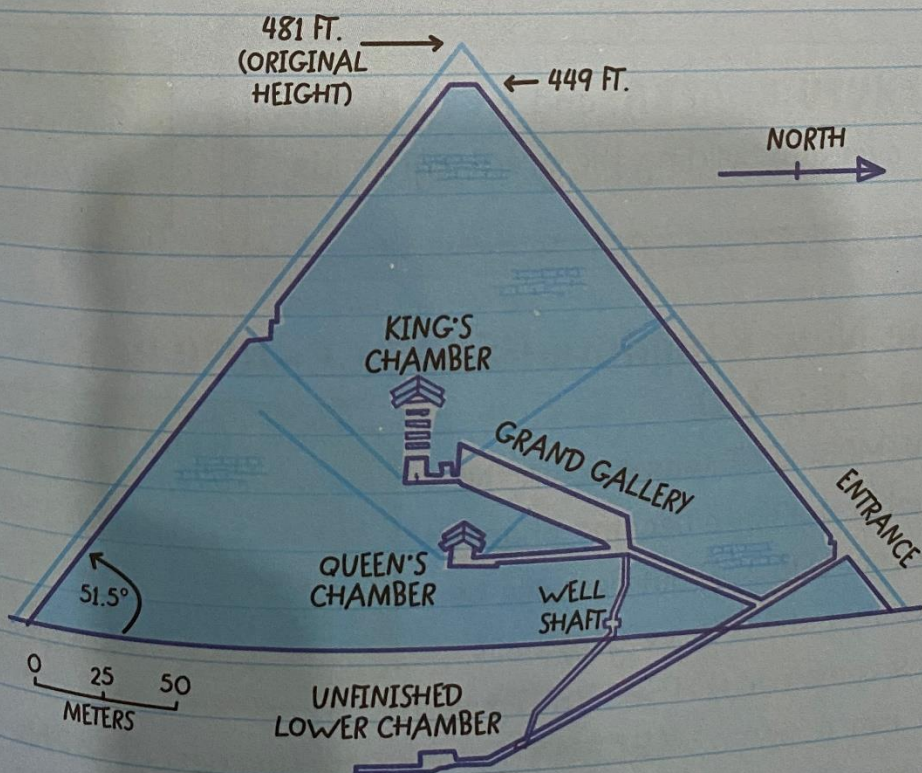 481 FT.
(ORIGINAL
HEIGHT)
449 FT.
NORTH
KING'S
CHAMBER
GRAND GALLERY
ENTRANCE
QUEEN'S
CHAMBER
WELL
SHAFT
51.5°
0 25 50
METERS
UNFINISHED
LOWER CHAMBER